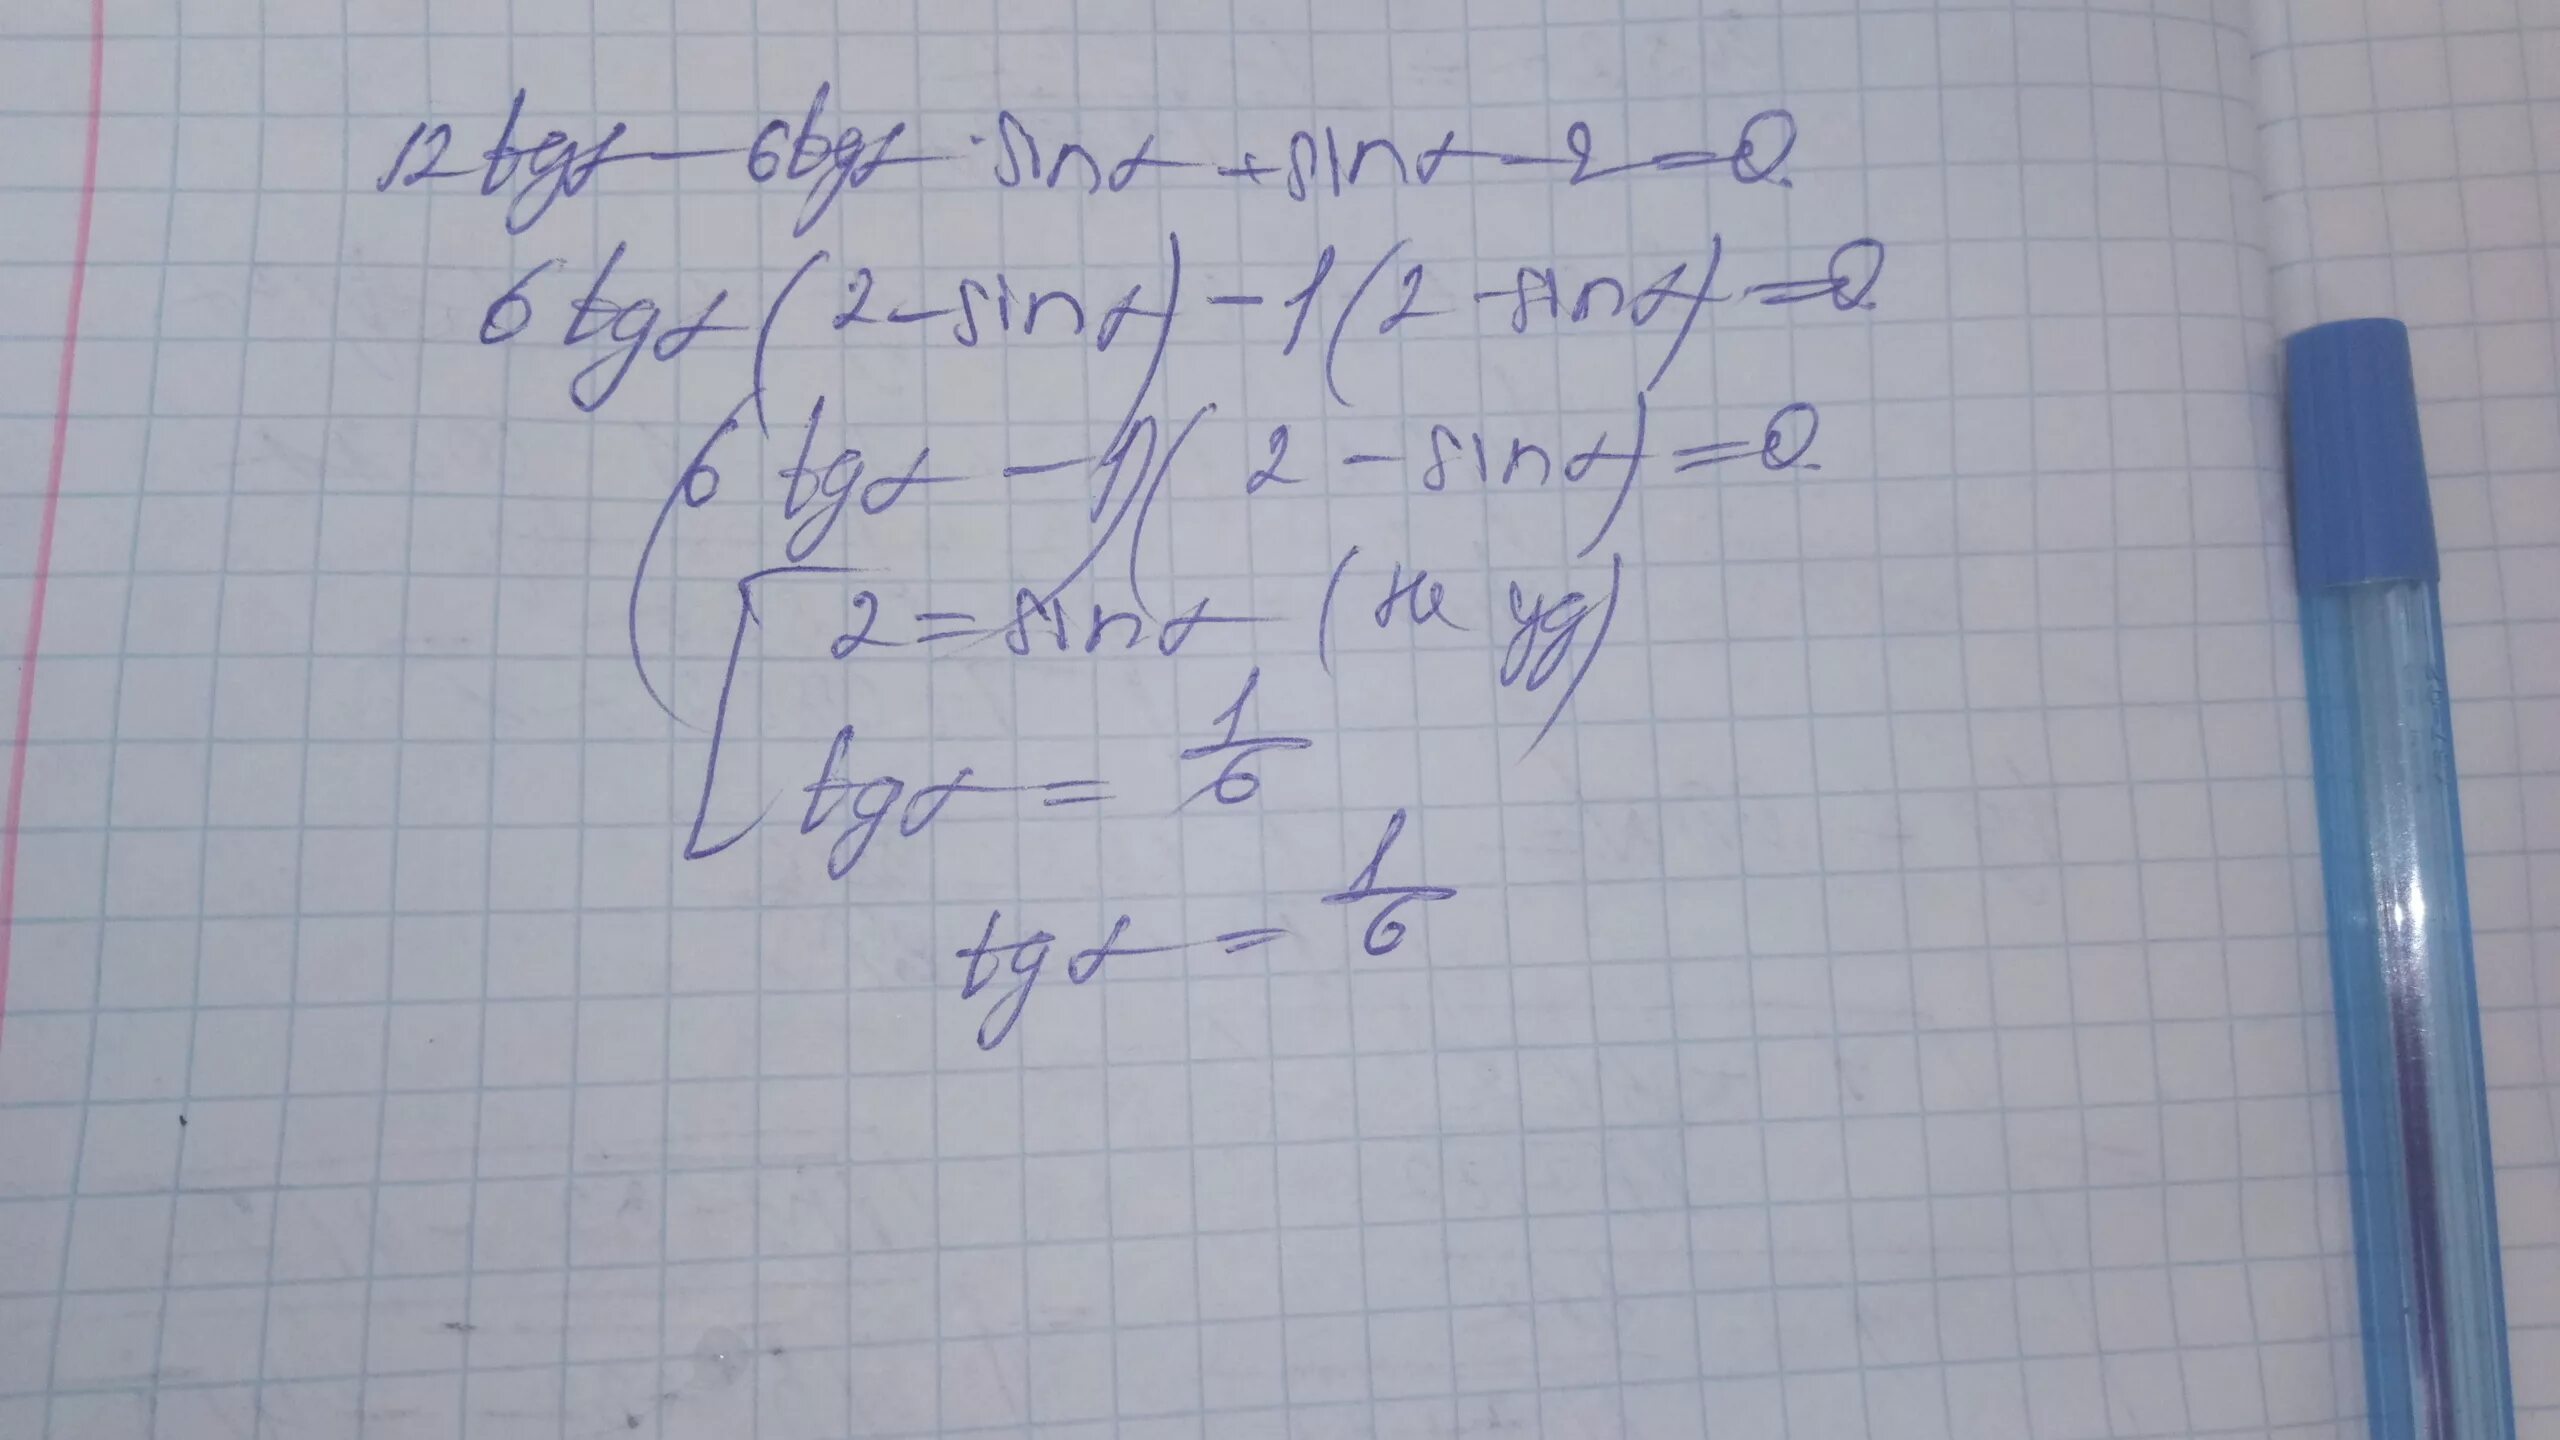 12 tgα - 6 tgα · sin α + sin α - 2 = 0
6 tg α (2 - sin α) - 1 (2 - sin α) = 0
(6 tg α - 1) (2 - sin α) = 0
[ 2 = sin α (не уд)
tg α = 1/6
tg α = 1/6